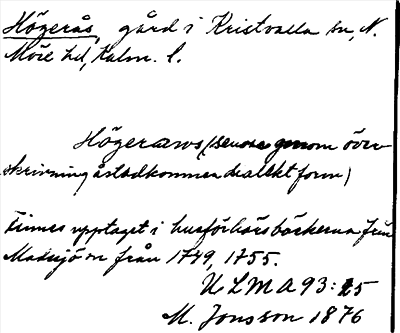 Högerås, gård i Kristvalla sn, N.
Möre hd, Kalm. l.
Högeraws (denna genom över
skrivning åstadkommen dialekt form)
Finnes upptaget i husförhörsböckerna från
Madesjö sn från 1749, 1755.
ULMA 93:25
M. Jonsson 1876